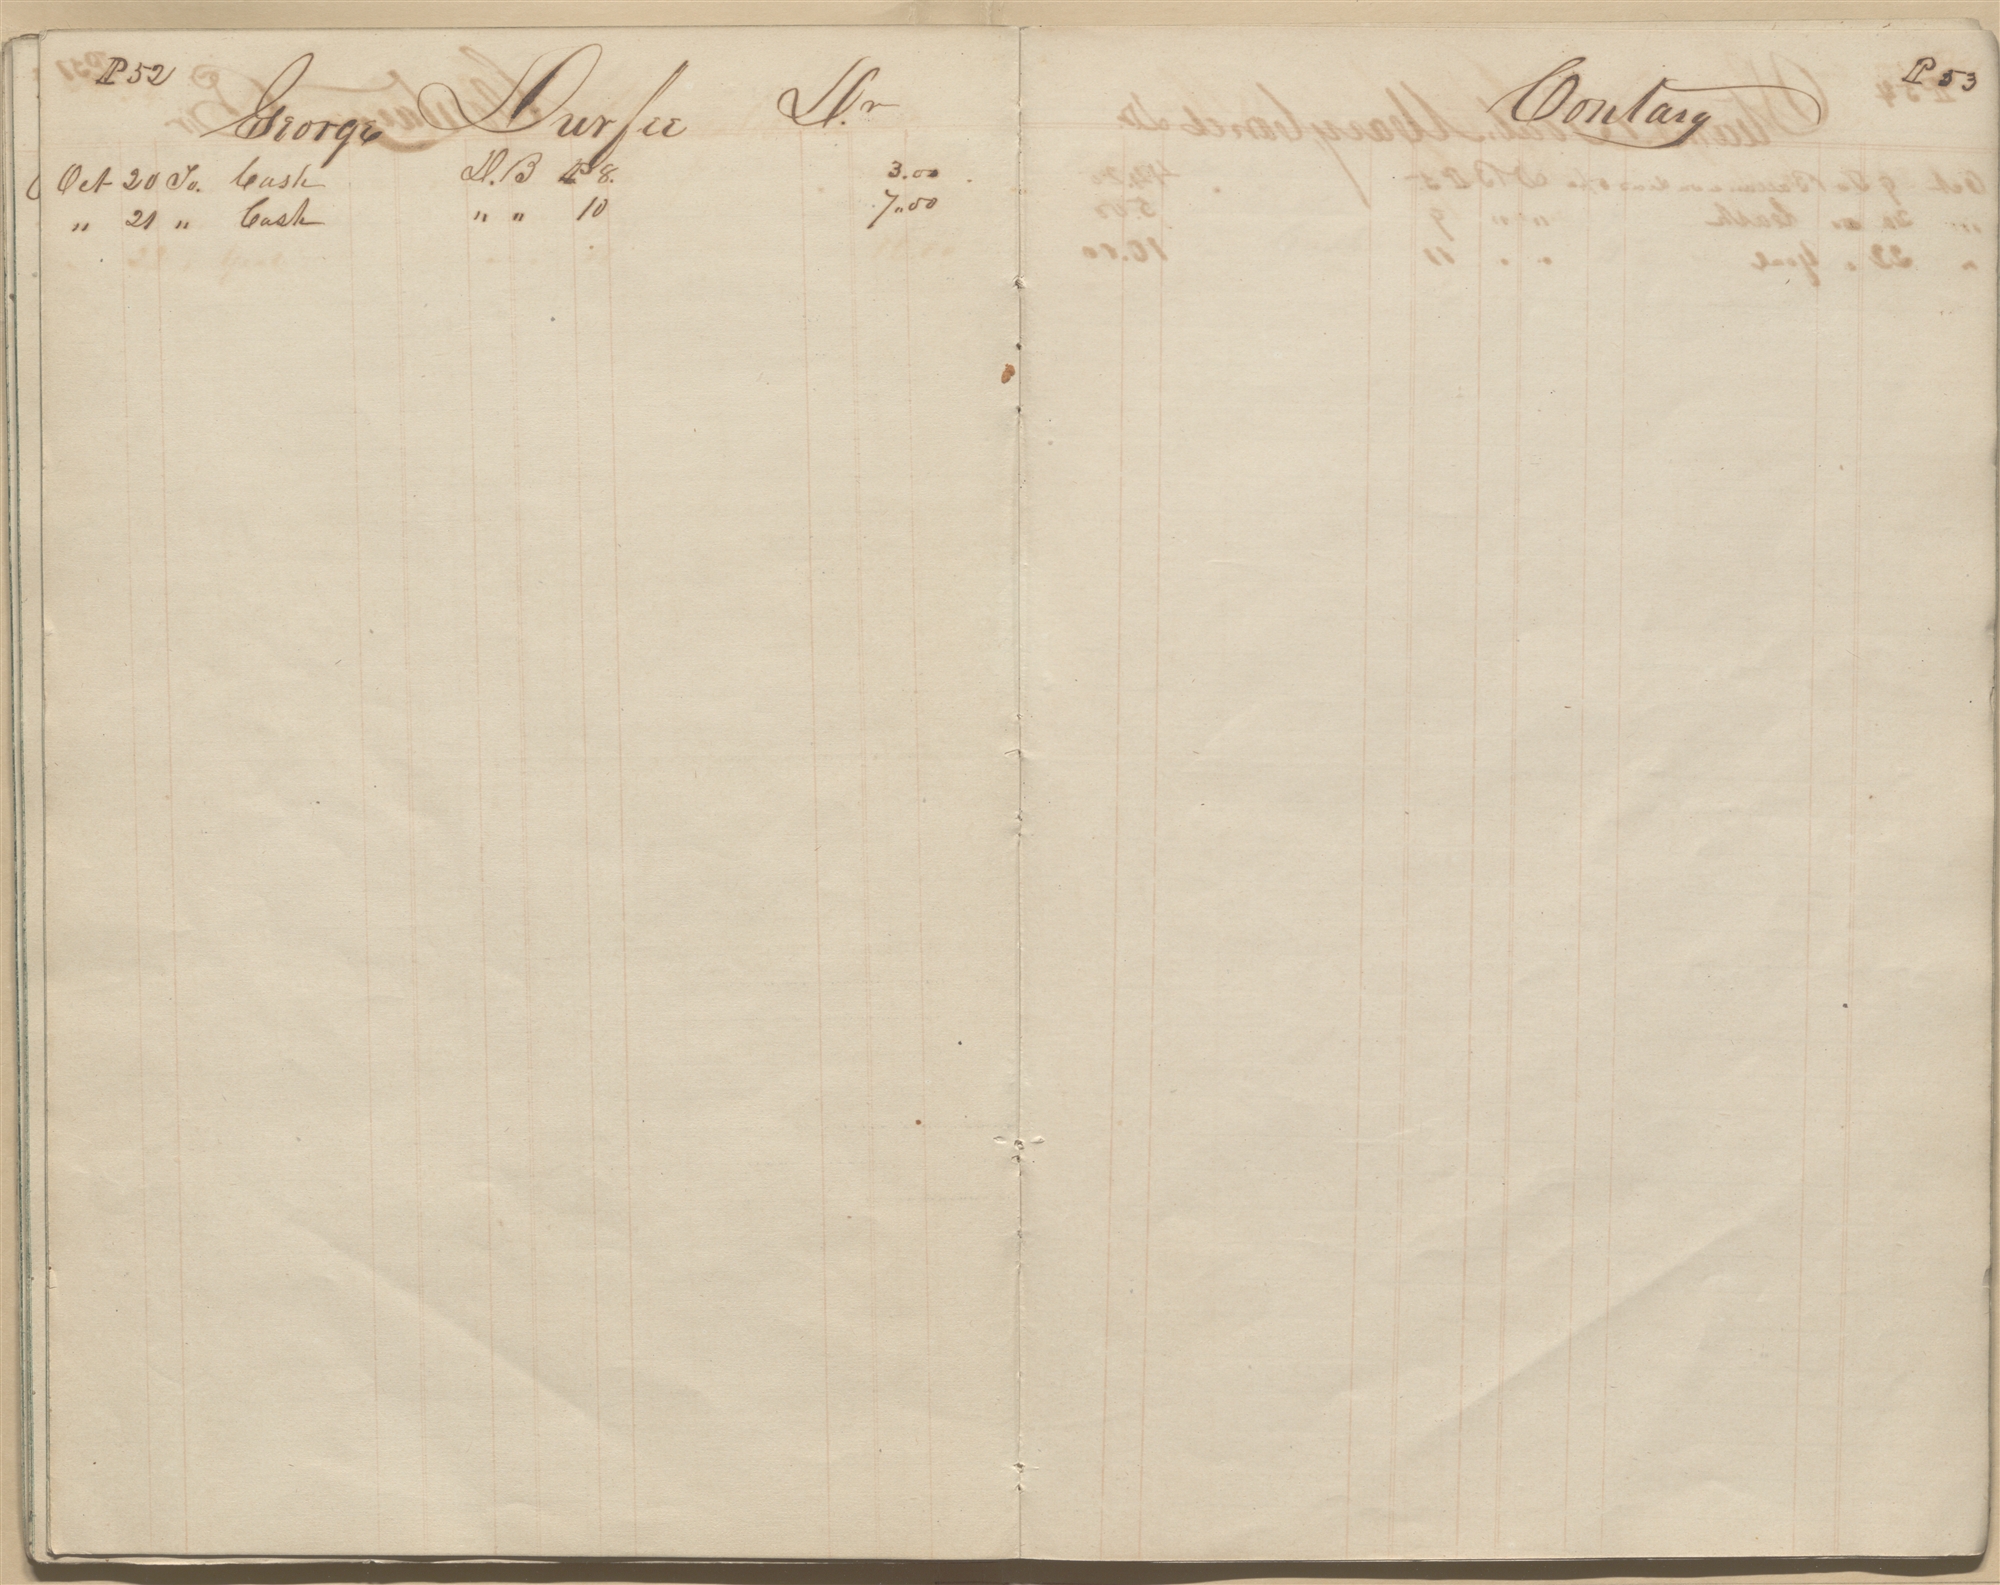 P 52
George Durfee Dr
Oct 20 To. Cash D.B P 8. 3.00
" 21 " Cash " " 10 7.00
P 53
Contary